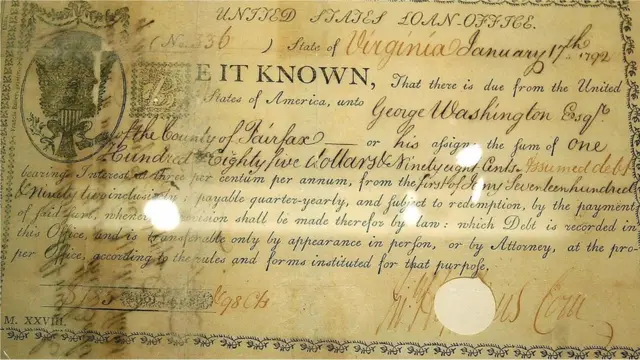 UNITED STATES LOAN-OFFICE.
(No. 336 ) State of Virginia January 17th 1792
BE IT KNOWN, That there is due from the United
States of America, unto George Washington Esqr
of the County of Fairfax or his assigns the sum of One
Hundred Eighty five Dollars & Ninety eight Cents Assumed debt
bearing Interest at three per centum per annum, from the first of Jany Seventeen hundred
& Ninety two inclusively, payable quarter-yearly, and subject to redemption, by the payment
of said sum, whenever provision shall be made therefor by law: which Debt is recorded in
this Office, and is transferable only by appearance in person, or by Attorney, at the pro-
per Office, according to the rules and forms instituted for that purpose.
185 98 Cts
M. XXVIII.